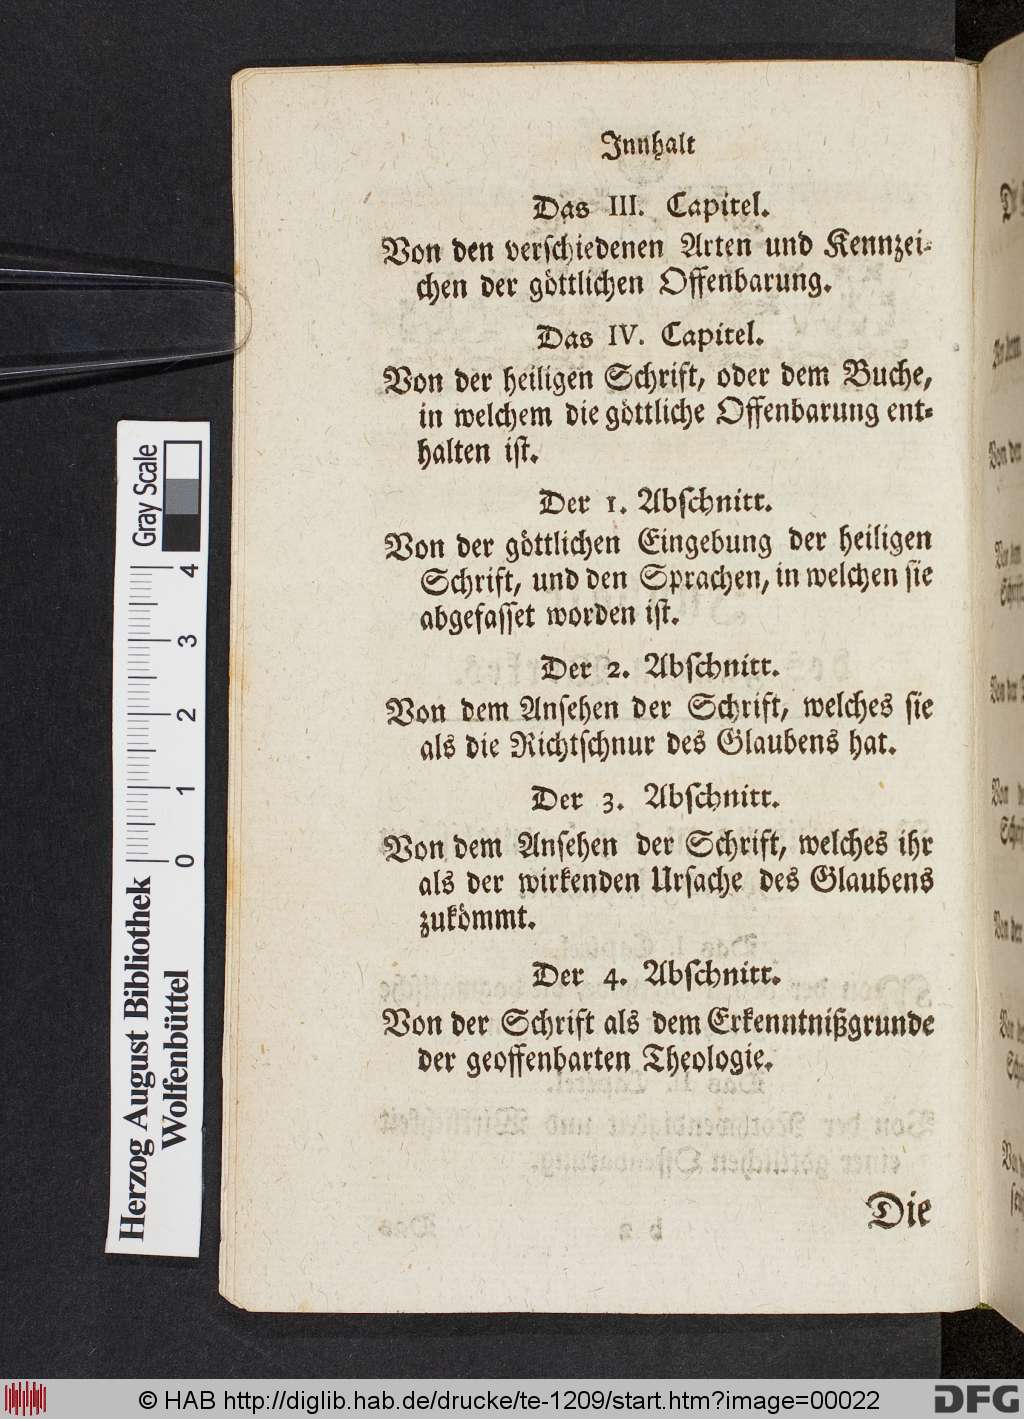 Innhalt
Das III. Capitel.
Von den verschiedenen Arten und Kennzei-
chen der göttlichen Offenbarung.
Das IV. Capitel.
Von der heiligen Schrift, oder dem Buche,
in welchem die göttliche Offenbarung ent-
halten ist.
Der 1. Abschnitt.
Von der göttlichen Eingebung der heiligen
Schrift, und den Sprachen, in welchen sie
abgefasset worden ist.
Der 2. Abschnitt.
Von dem Ansehen der Schrift, welches sie
als die Richtschnur des Glaubens hat.
Der 3. Abschnitt.
Von dem Ansehen der Schrift, welches ihr
als der wirkenden Ursache des Glaubens
zukömmt.
Der 4. Abschnitt.
Von der Schrift als dem Erkenntnißgrunde
der geoffenbarten Theologie.
Die
Gray Scale
4
3
2
1
0
Herzog August Bibliothek
Wolfenbüttel
© HAB http://diglib.hab.de/drucke/te-1209/start.htm?image=00022
DFG